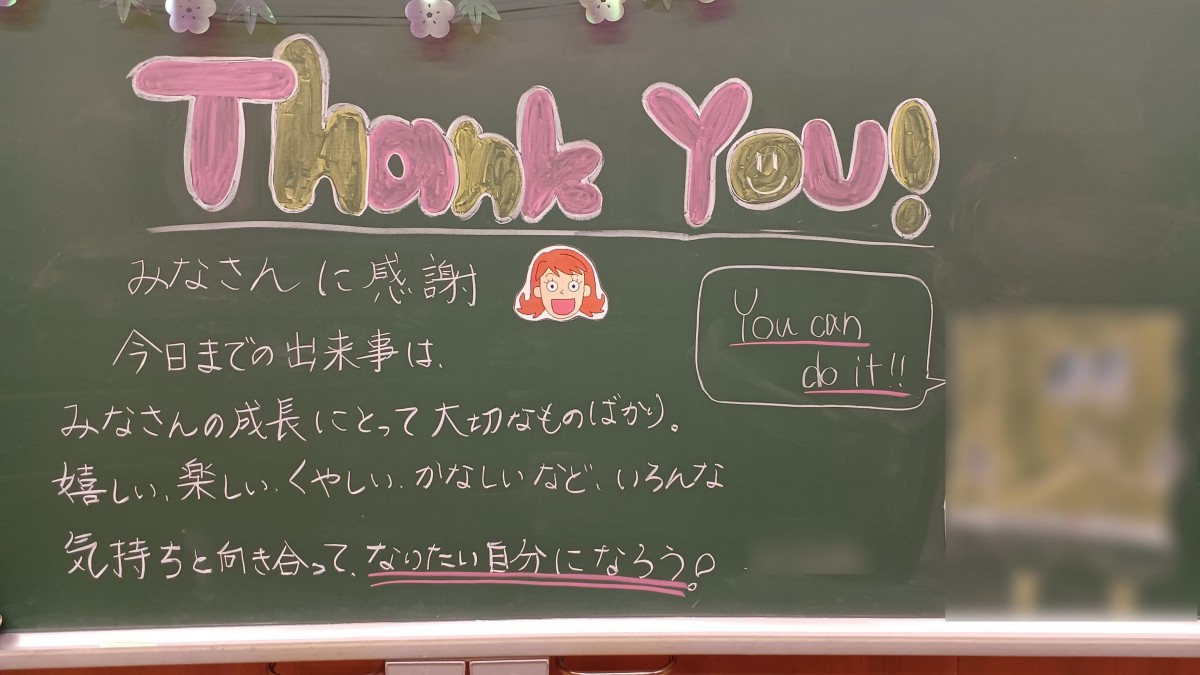 Thank You!
みなさんに感謝
You can
do it!!
今日までの出来事は、
みなさんの成長にとって大切なものばかり。
嬉しい、楽しい、くやしい、かなしいなど、いろんな
気持ちと向き合って、なりたい自分になろう!